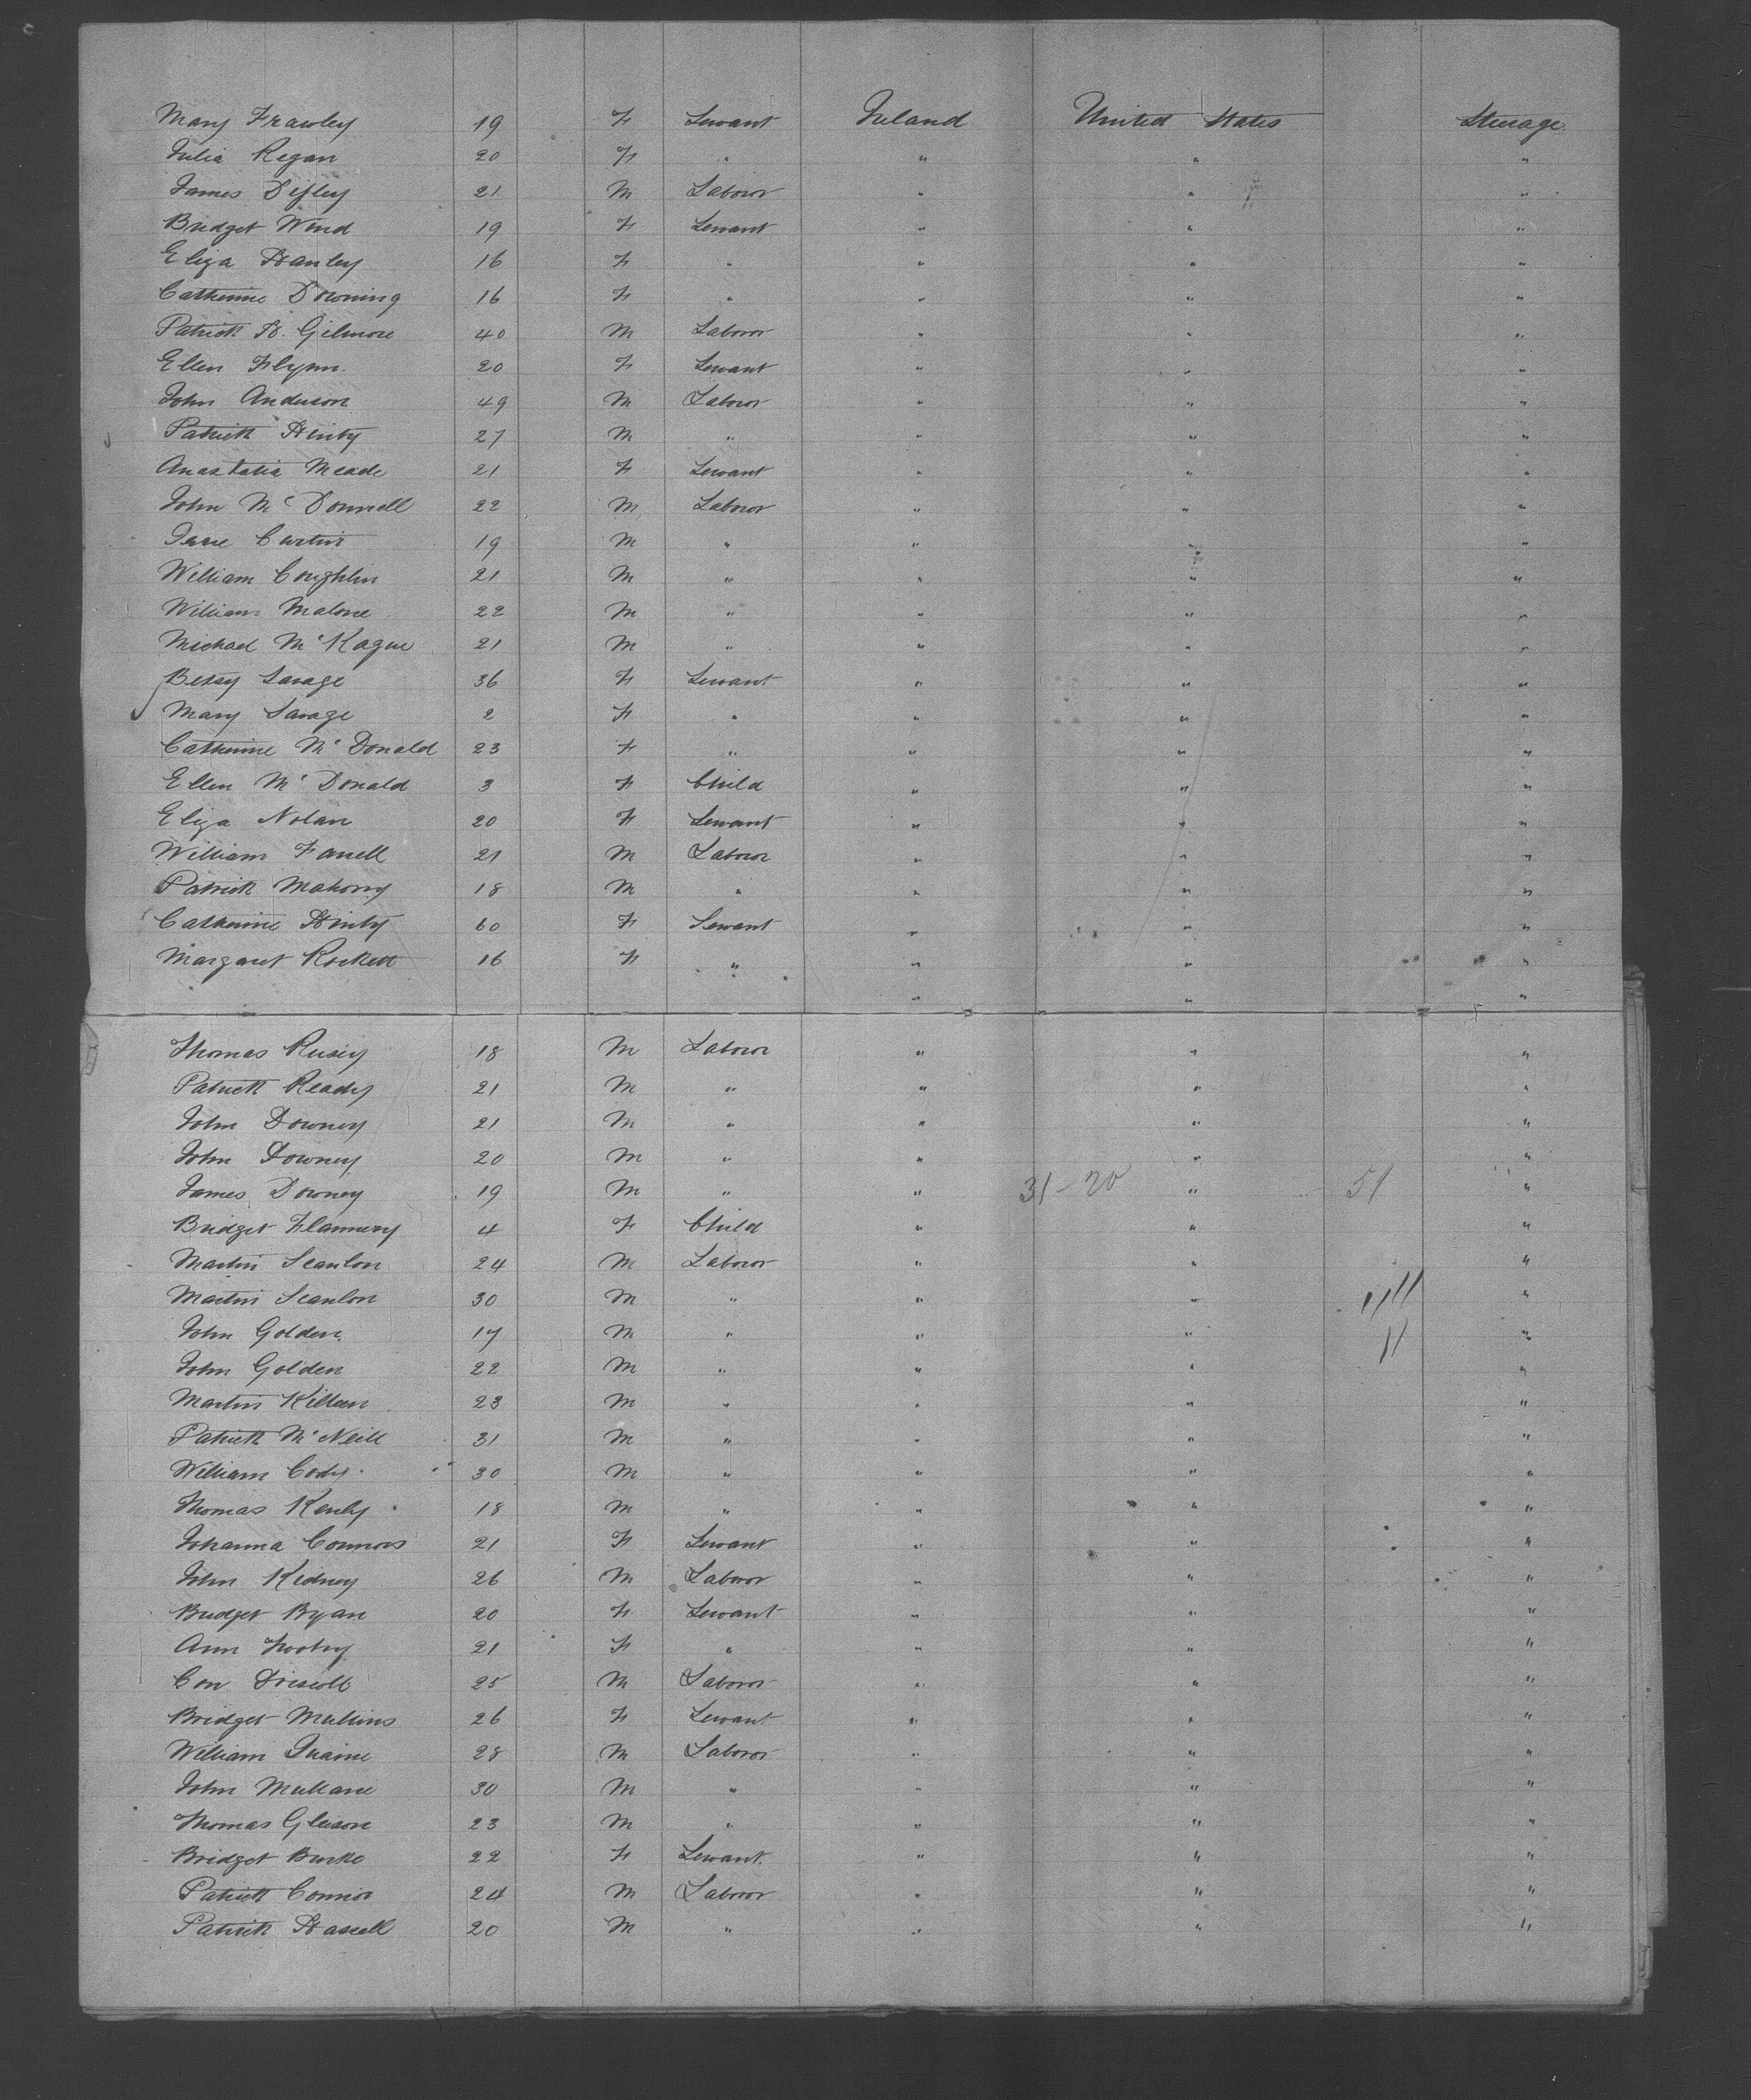 Mary Frawley 19 F Servant Ireland United States Steerage
Julia Regan 20 F " " " "
James Difley 21 M Laboror " " "
Bridget Wind 19 F Servant " " "
Eliza Hanley 16 F " " " "
Catherine Downing 16 F " " " "
Patrick H. Gilmore 40 M Laboror " " "
Ellen Flynn. 20 F Servant " " "
John Anderson 49 M Laboror " " "
Patrick Hinty 27 M " " " "
Anastatia Meade 21 F Servant " " "
John McDonnell 22 M Laboror " " "
Curtin 19 M " " " "
William Coughlin 21 M " " " "
William Malone 22 M " " " "
Michael McKague 21 M " " " "
Betsy Savage 36 F Servant " " "
Mary Savage 2 F " " " "
Catherine McDonald 23 F " " " "
Ellen McDonald 3 F Child " " "
Eliza Nolan 20 F Servant " " "
William Farrell 21 M Laboror " " "
Patrick Mahony 18 M " " " "
Catherine Hinty 60 F Servant " " "
Margaret Rockett 16 F " " " "
" " "
Thomas 18 M Laboror " " "
Patrick Ready 21 M " " " "
John Downey 21 M " " " "
John Downey 20 M " " " "
James Downey 19 M " " 31-20 " 51 "
Bridget Flannery 4 F Child " " "
Martin Scanlon 24 M Laboror " " "
Martin Scanlon 30 M " " " "
John Golden 17 M " " " "
John Golden 22 M " " " "
Martin Killeen 23 M " " " "
Patrick McNeill 31 M " " " "
William Cody 30 M " " " "
Thomas Kenly 18 M " " " "
Johanna Connors 21 F Servant " " "
John Kidney 26 M Laboror " " "
Bridget Ryan 20 F Servant " " "
Ann 21 F " " " "
Con Driscoll 25 M Laboror " " "
Bridget Mullins 26 F Servant " " "
William 28 M Laboror " " "
John Mullane 30 M " " " "
Thomas Gleison 23 M " " " "
Bridget Burke 22 F Servant. " " "
Patrick Connor 24 M Laboror " " "
Patrick Hassell 20 M " " " "